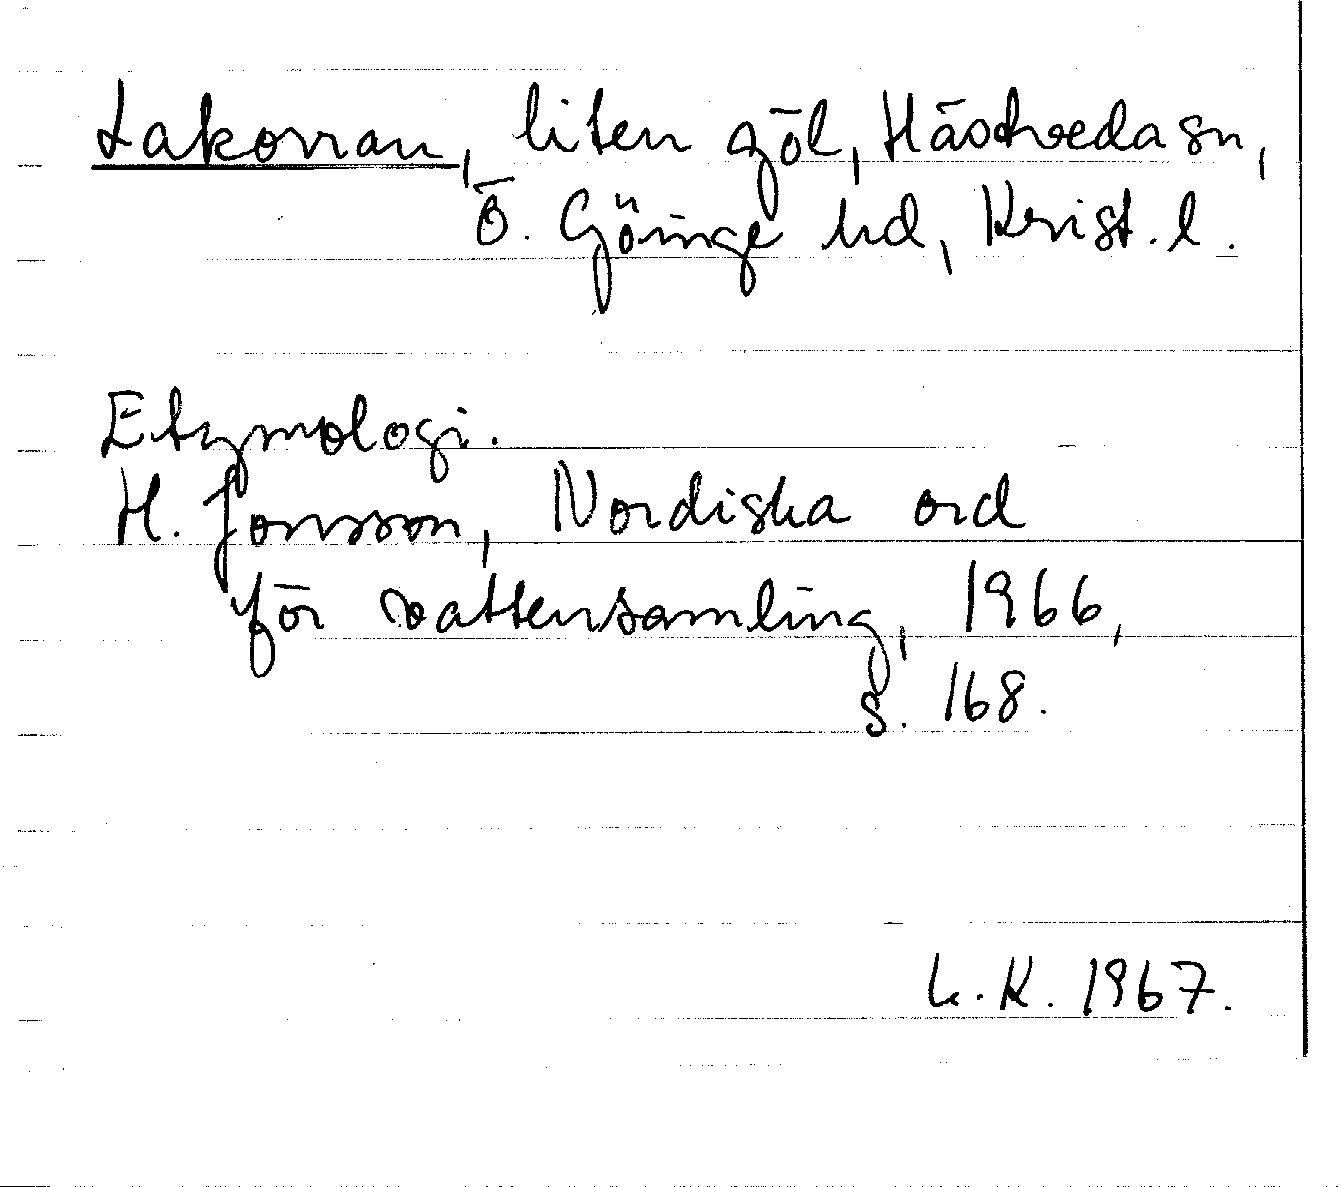 Lakorran, liten göl, Hästveda sn,
Ö. Göinge hd, Krist. l.
Etymologi.
H. Jonsson, Nordiska ord
för vattensamling, 1966,
s. 168.
L. K. 1967.